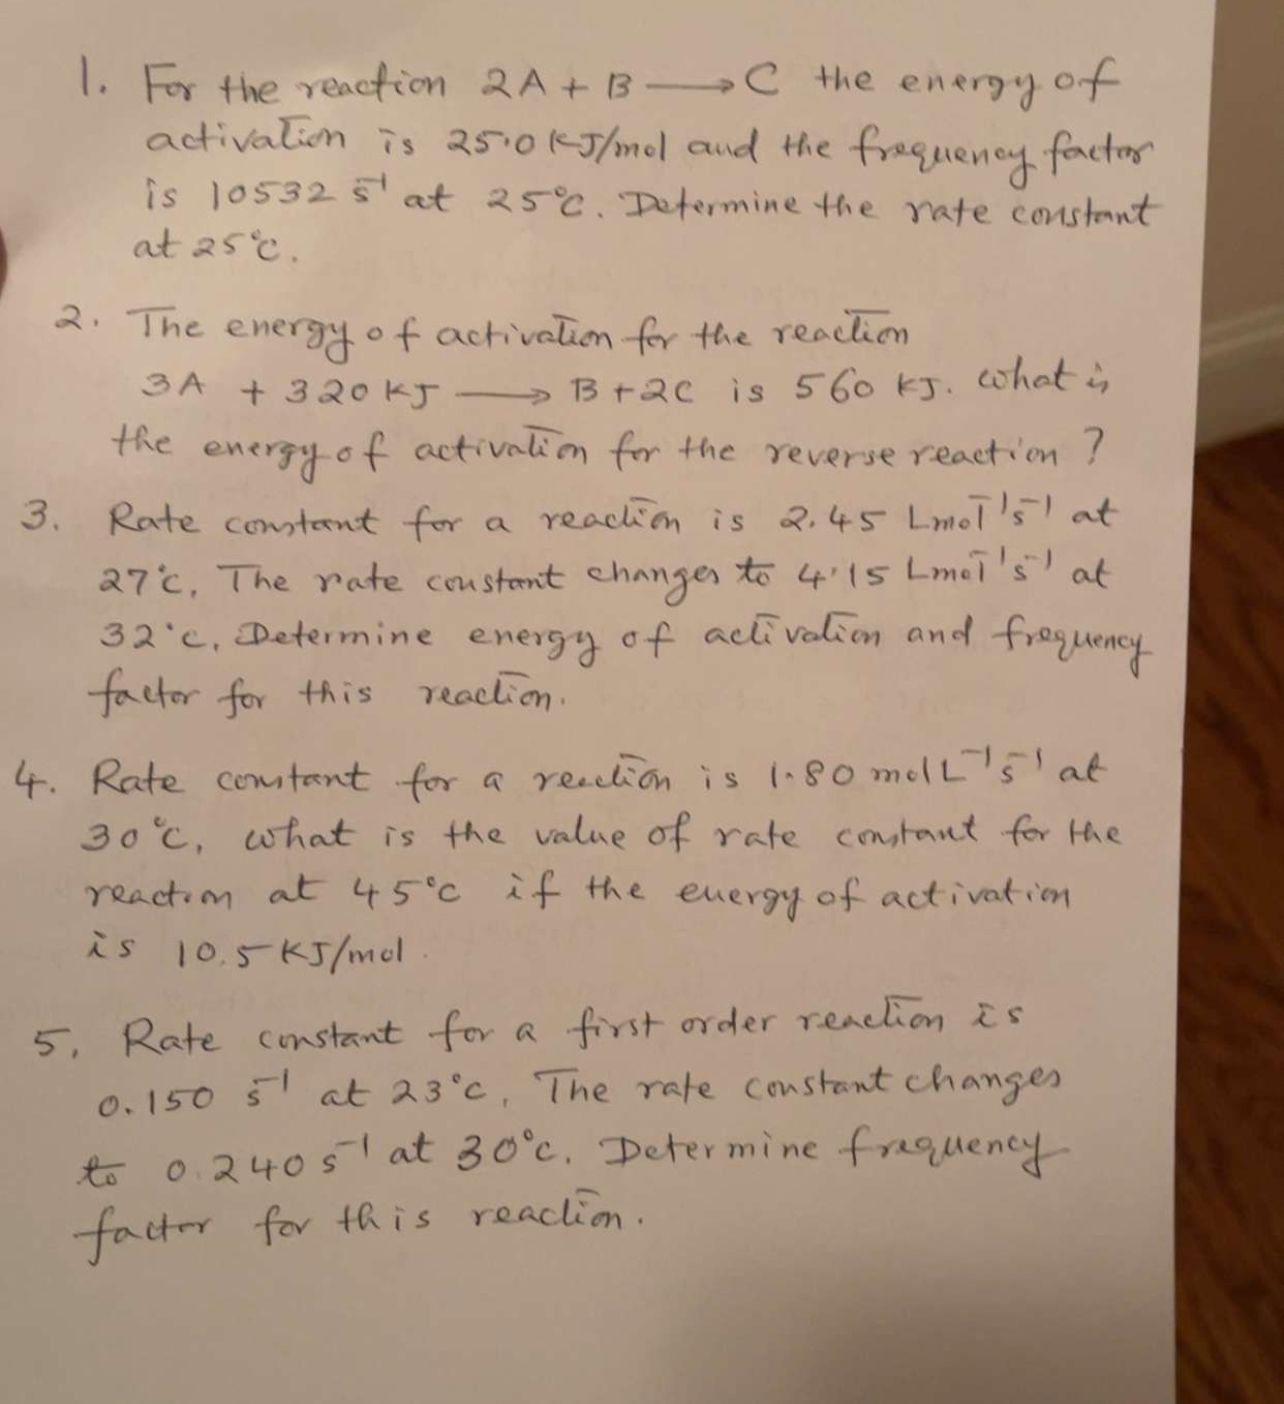 1. For the reaction 2A + B ⟶ C the energy of
activation is 25.0 KJ/mol and the frequency factor
is 10532 s⁻¹ at 25°C. Determine the rate constant
at 25°C.
2. The energy of activation for the reaction
3A + 320 KJ ⟶ B + 2C is 560 KJ. What is
the energy of activation for the reverse reaction ?
3. Rate constant for a reaction is 2.45 Lmol⁻¹s⁻¹ at
27°C, The rate constant changes to 4.15 Lmol⁻¹s⁻¹ at
32°C, Determine energy of activation and frequency
factor for this reaction.
4. Rate constant for a reaction is 1.80 mol L⁻¹s⁻¹ at
30°C, what is the value of rate constant for the
reaction at 45°C if the energy of activation
is 10.5 KJ/mol.
5. Rate constant for a first order reaction is
0.150 s⁻¹ at 23°C, The rate constant changes
to 0.240 s⁻¹ at 30°C. Determine frequency
factor for this reaction.